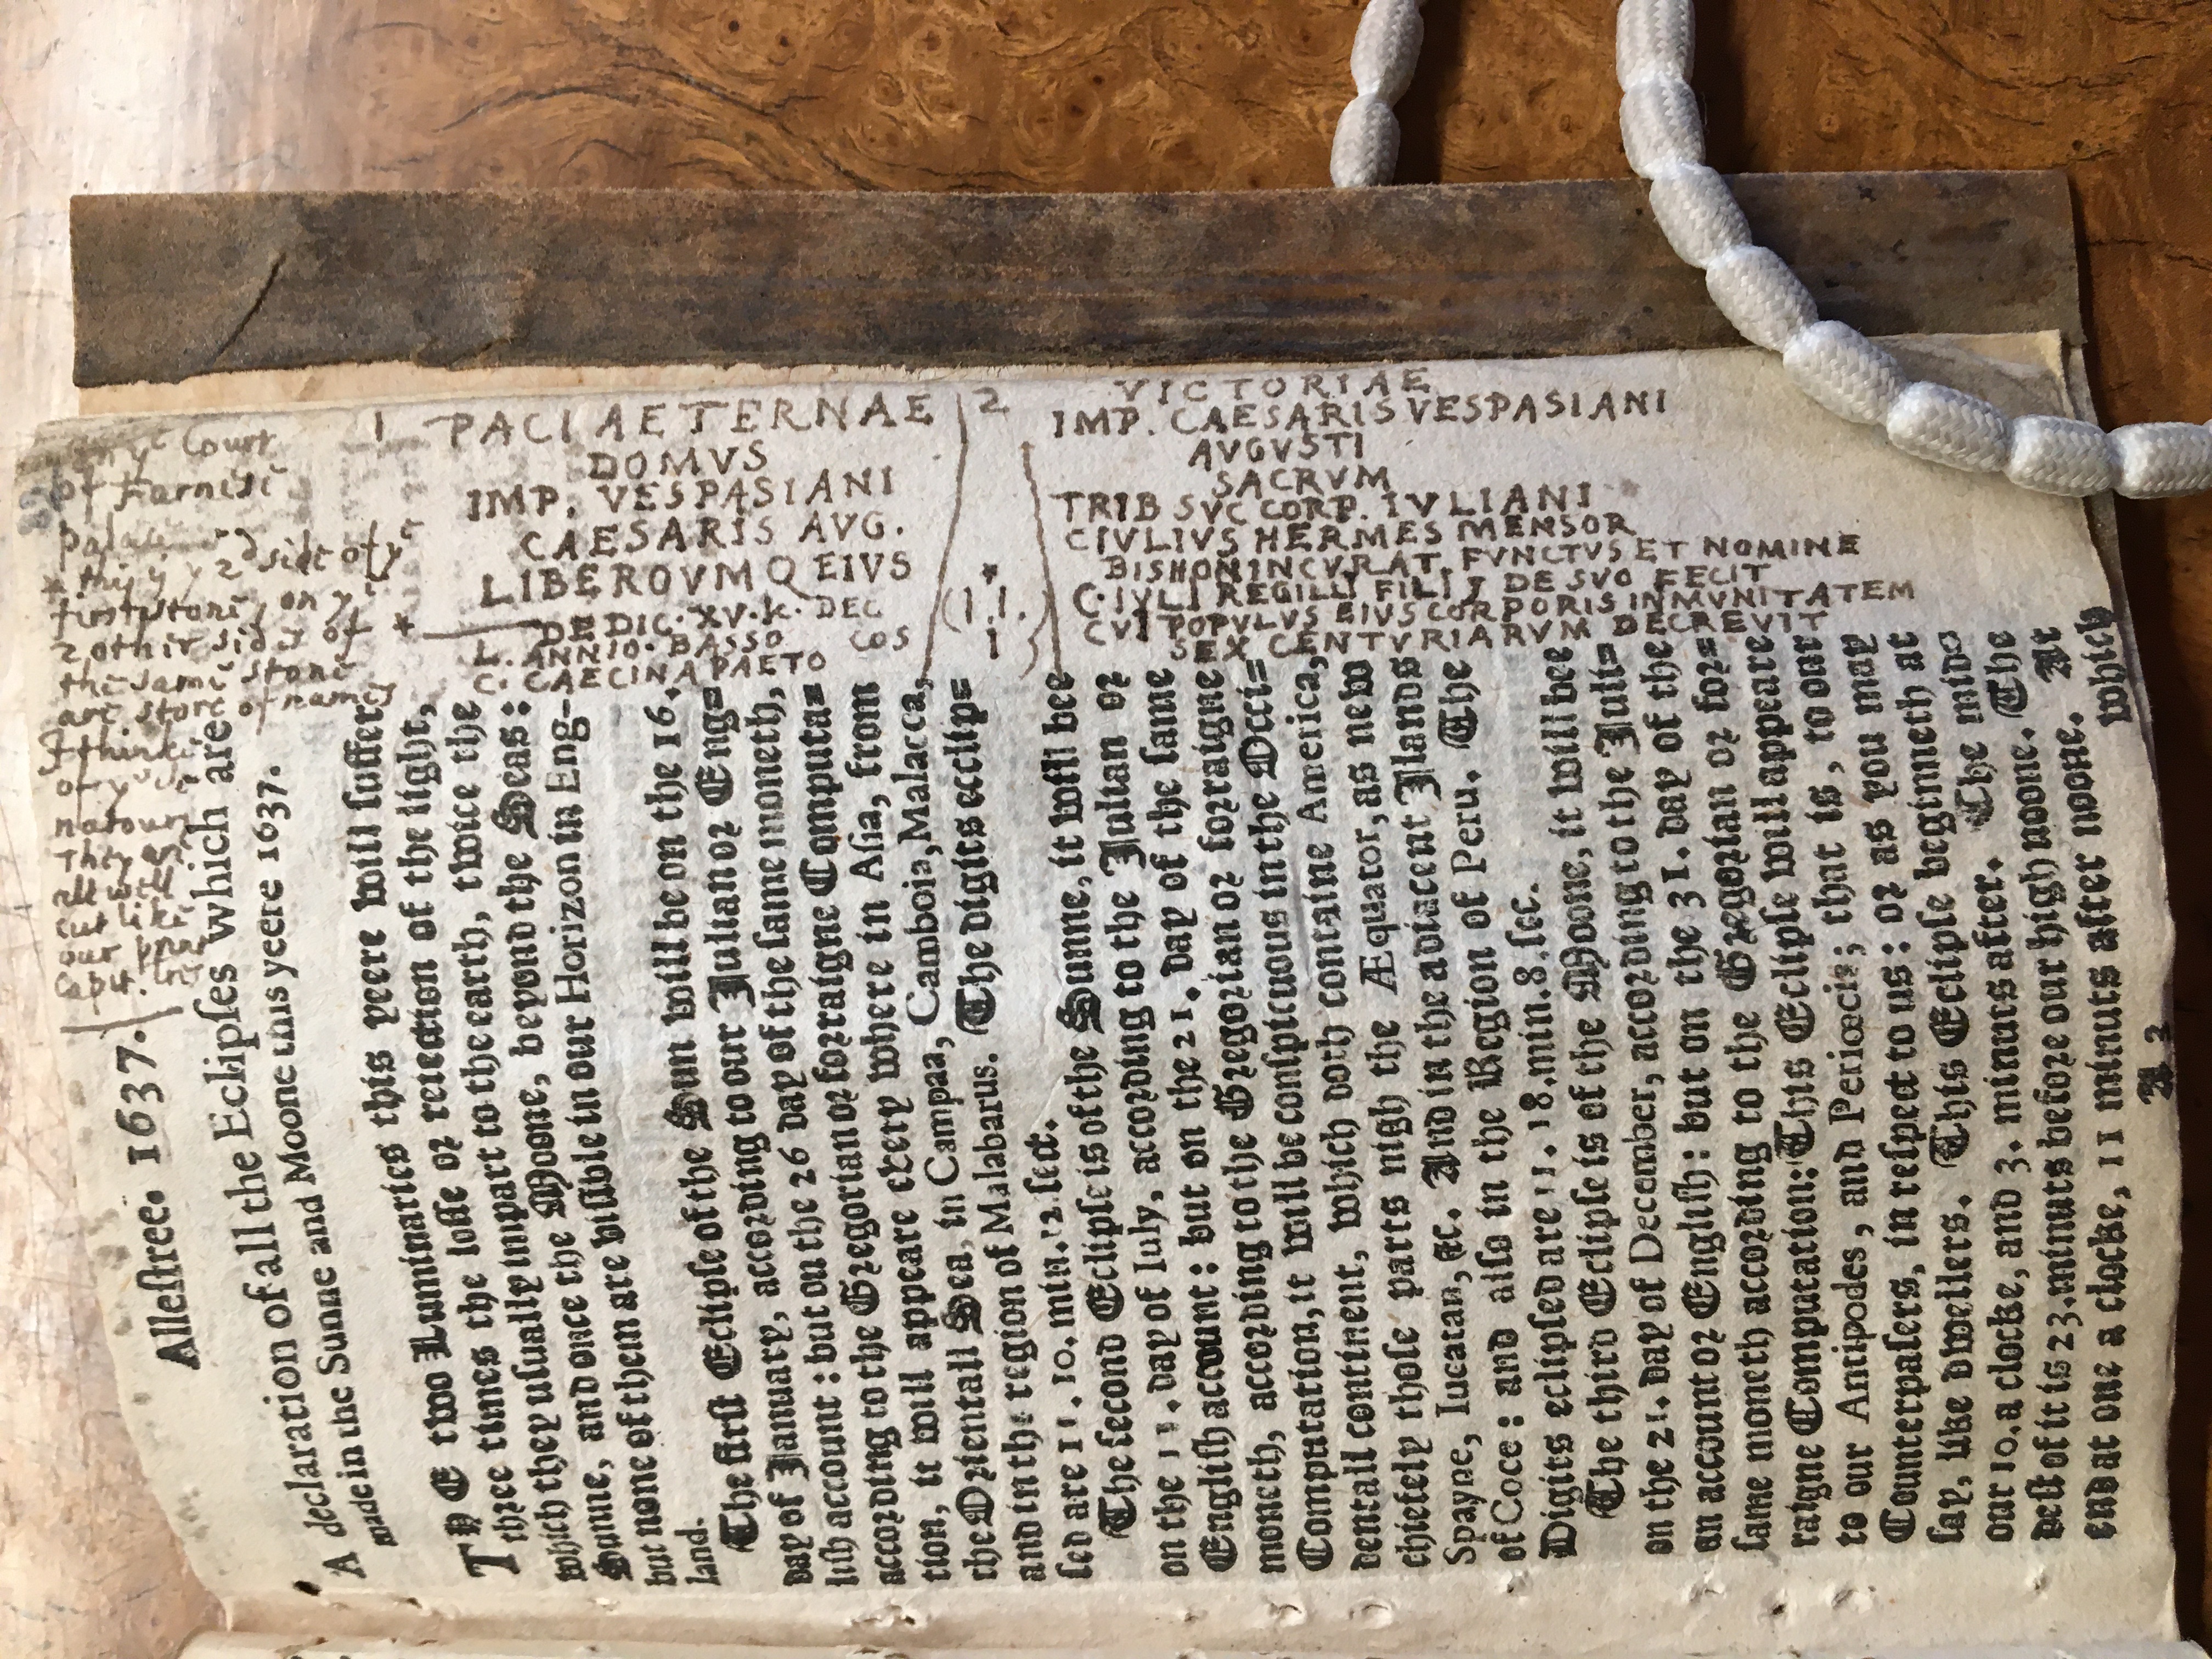 Allestree. 1637.
A declaration of all the Eclipses which are
made in the Sunne and Moone this yeere 1637.
THE two Luminaries this yeere will suffer
three times the losse or reiection of the light,
which they usually impart to the earth, twice the
Sunne, and once the Moone, beyond the Seas:
but none of them are visible in our Horizon in Eng-
land.
The first Eclipse of the Sun will be on the 16.
day of January, according to our Julian or Eng=
lish account: but on the 26 day of the same moneth,
according to the Gregorian or forraigne Computa=
tion, it will appeare every where in Asia, from
the Orientall Sea, in Campaa, Camboia, Malacca,
and in the region of Malabarus. The digits eclip=
sed are 11. 10. min. 12. sect.
The second Eclipse is of the Sunne, it will bee
on the 11. day of Iuly, according to the Julian or
English account: but on the 21. day of the same
moneth, according to the Gregorian or forraigne
Computation, it will be conspicuous in the Occi=
dentall continent, which doth containe America,
chiefely those parts nigh the Æquator, as new
Spayne, Iucatan, &c. And in the adiacent Ilands
of Coce: and also in the Region of Peru. The
Digits eclipsed are 11. 18. min. 8. sec.
The third Eclipse is of the Moone, it will bee
on the 21. day of December, according to the Juli=
an account or English: but on the 31. day of the
same moneth according to the Gregorian or for=
raigne Computation: This Eclipse will appeare
to our Antipodes, and Periœcis; that is, to our
Counterpasers, in respect to us: or as you may
say, like dwellers. This Eclipse beginneth at
our 10. a clocke, and 3. minuts after. The mid=
dest of it is 23. minuts before our high noone. The
end at one a clocke, 11 minuts after noone. At
A 2 which
in ye Court
of Farnesi
palace
* this is ye 2d side of ye
first stone, on ye
2 other sides of
the same stone
are store of names
I think
1 PACI AETERNAE
DOMVS
IMP. VESPASIANI
CAESARIS AVG.
LIBEROVMQ EIVS
* DEDIC. XV. K. DEC
L. ANNIO. BASSO COS
C. CAECINA PAETO
2 VICTORIAE
IMP. CAESARIS VESPASIANI
AVGVSTI
SACRVM
TRIB SVC CORP. IVLIANI
CIVLIVS HERMES MENSOR
BISHONINCVRAT. FVNCTVS ET NOMINE
C. IVLI REGILLI FILIJ DE SVO FECIT
CVI POPVLVS EIVS CORPORIS INMVNITATEM
SEX CENTVRIARVM DECREVIT